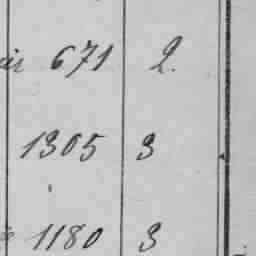 671 2.
1305 3
1180 3